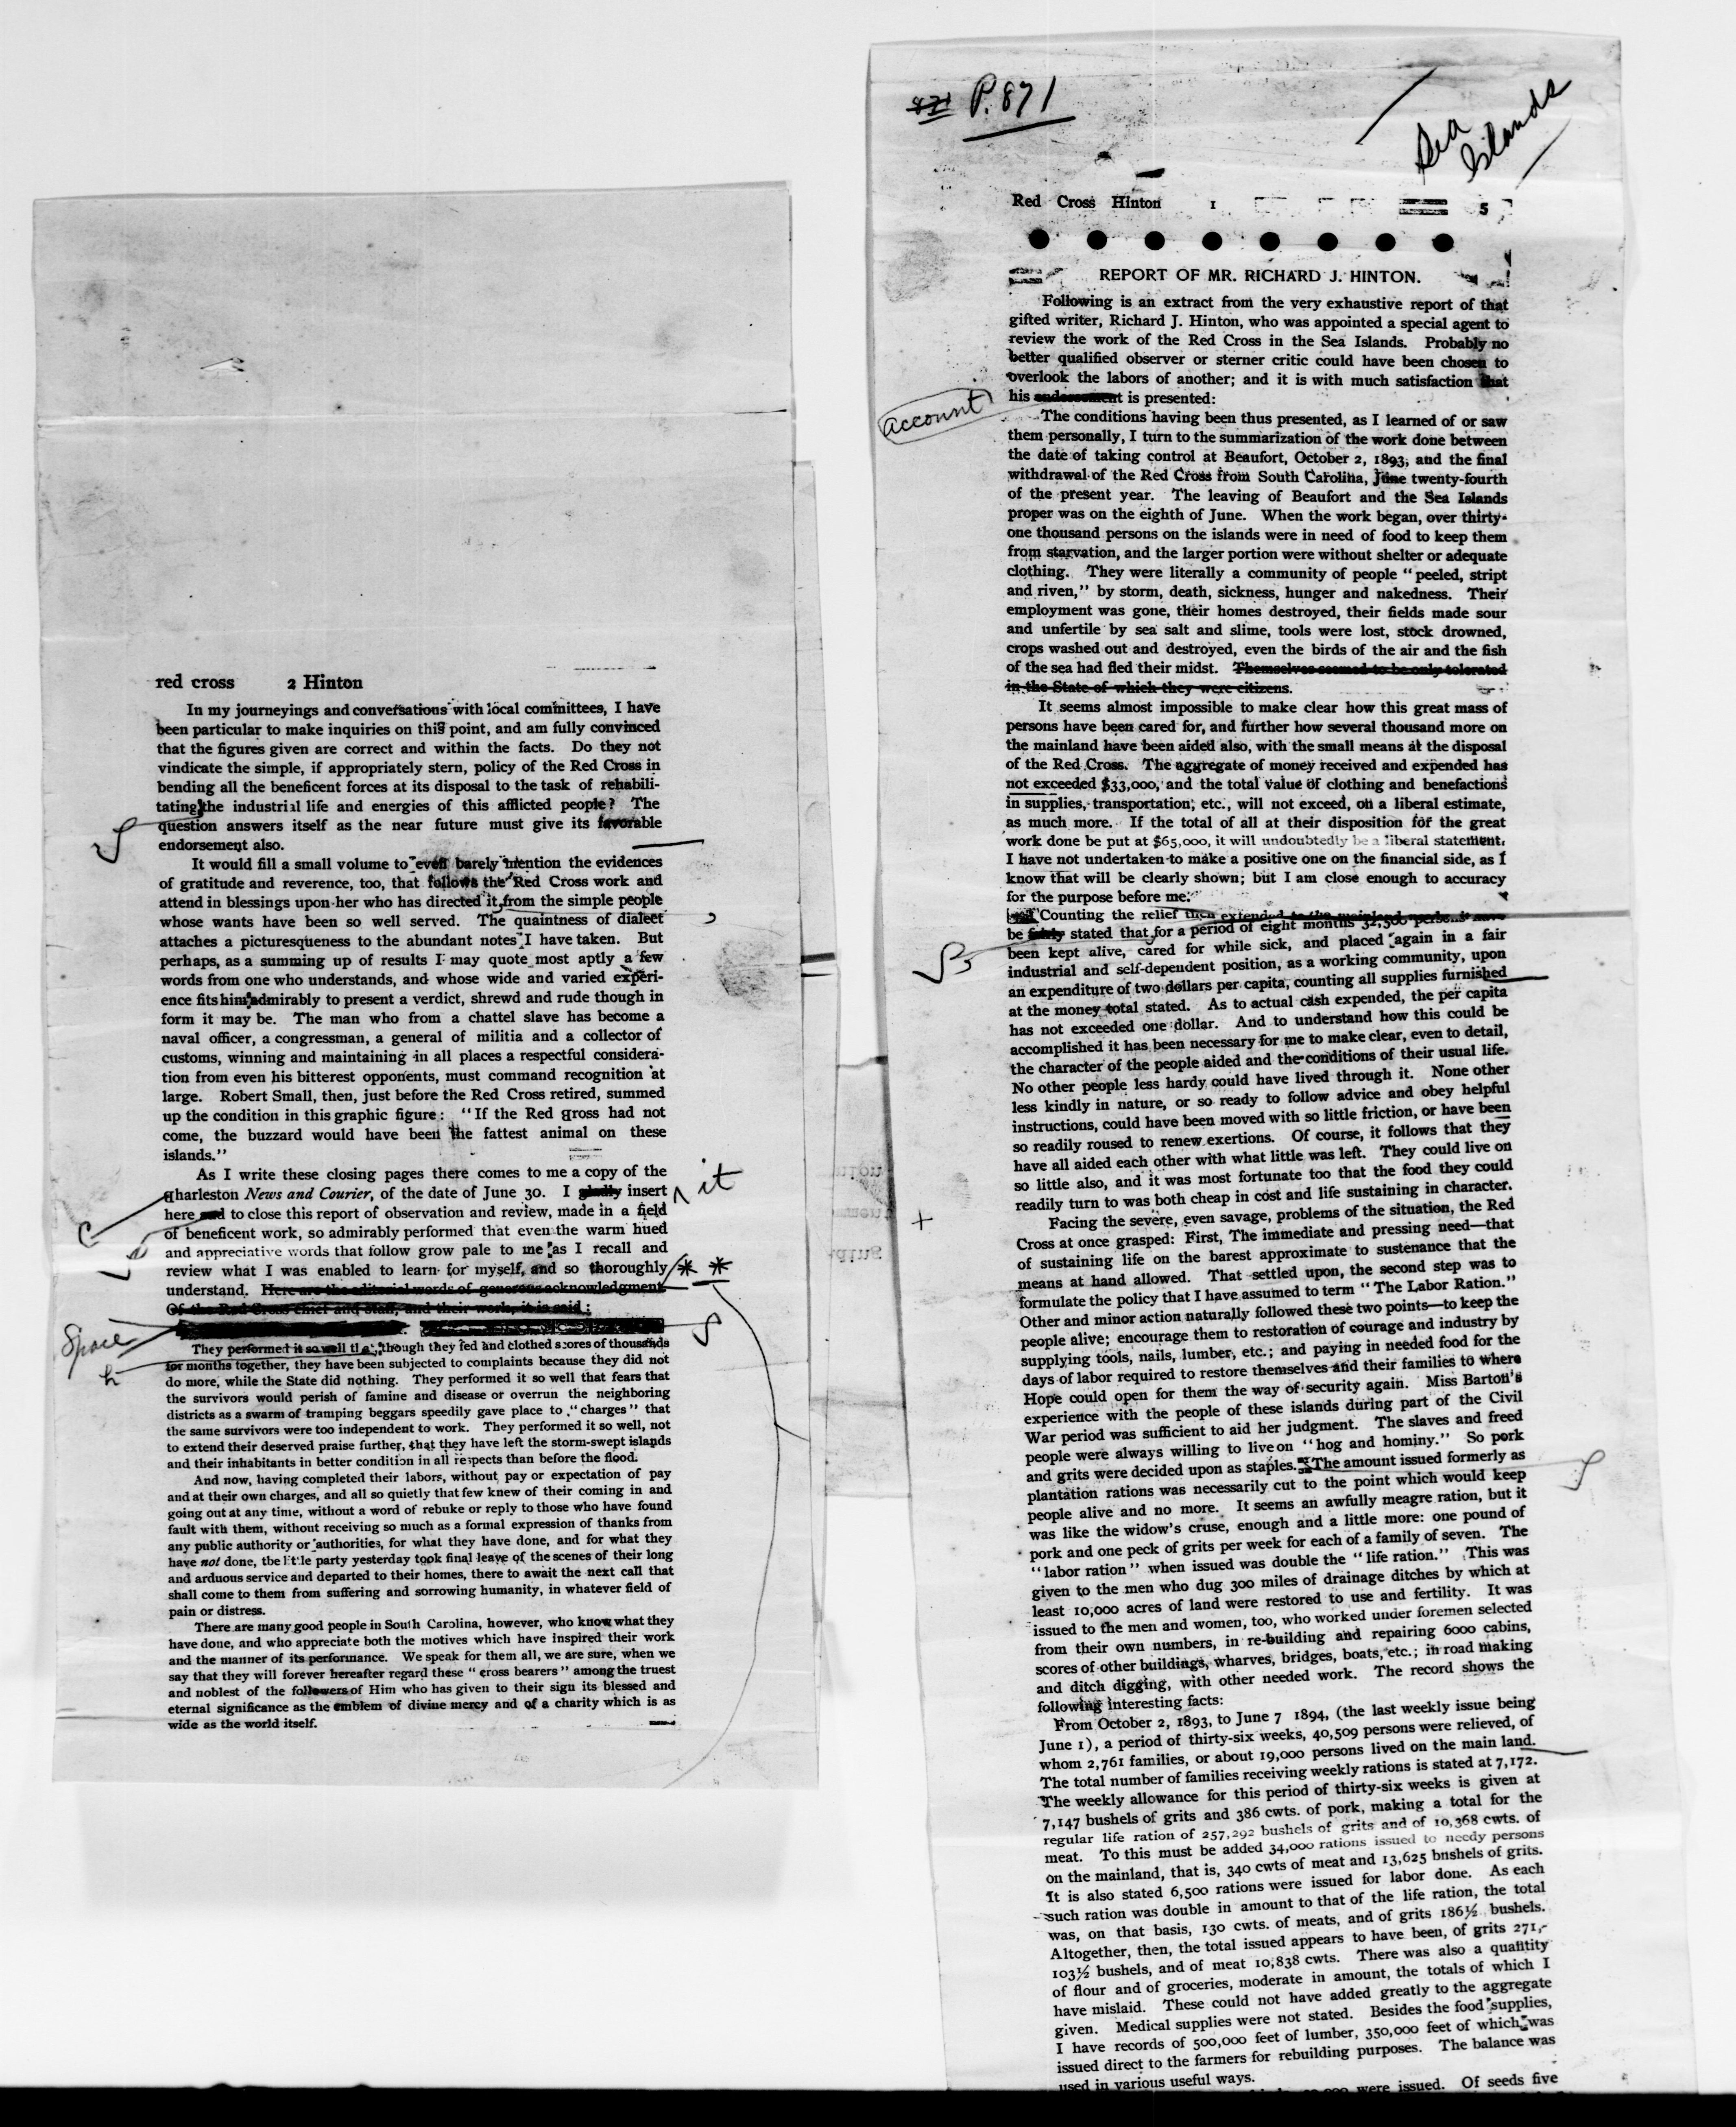 red cross 2 Hinton
In my journeyings and conversations with local committees, I have
been particular to make inquiries on this point, and am fully convinced
that the figures given are correct and within the facts. Do they not
vindicate the simple, if appropriately stern, policy of the Red Cross in
bending all the beneficent forces at its disposal to the task of rehabili-
tating the industrial life and energies of this afflicted people? The
question answers itself as the near future must give its favorable
endorsement also.
It would fill a small volume to even barely mention the evidences
of gratitude and reverence, too, that follows the Red Cross work and
attend in blessings upon her who has directed it, from the simple people
whose wants have been so well served. The quaintness of dialect
attaches a picturesqueness to the abundant notes I have taken. But
perhaps, as a summing up of results I may quote most aptly a few
words from one who understands, and whose wide and varied experi-
ence fits him admirably to present a verdict, shrewd and rude though in
form it may be. The man who from a chattel slave has become a
naval officer, a congressman, a general of militia and a collector of
customs, winning and maintaining in all places a respectful considera-
tion from even his bitterest opponents, must command recognition at
large. Robert Small, then, just before the Red Cross retired, summed
up the condition in this graphic figure: "If the Red gross had not
come, the buzzard would have been the fattest animal on these
islands."
As I write these closing pages there comes to me a copy of the
gharleston News and Courier, of the date of June 30. I gladly insert it
here and to close this report of observation and review, made in a field
C
of beneficent work, so admirably performed that even the warm hued
and appreciative words that follow grow pale to me as I recall and
review what I was enabled to learn for myself, and so thoroughly * *
understand. Here are the editorial words of generous acknowledgment
Of the Red Cross chief and staff, and their work, it is said:
Space
They performed it so well that, though they fed and clothed scores of thousands
for months together, they have been subjected to complaints because they did not
do more, while the State did nothing. They performed it so well that fears that
the survivors would perish of famine and disease or overrun the neighboring
districts as a swarm of tramping beggars speedily gave place to "charges" that
the same survivors were too independent to work. They performed it so well, not
to extend their deserved praise further, that they have left the storm-swept islands
and their inhabitants in better condition in all respects than before the flood.
And now, having completed their labors, without pay or expectation of pay
and at their own charges, and all so quietly that few knew of their coming in and
going out at any time, without a word of rebuke or reply to those who have found
fault with them, without receiving so much as a formal expression of thanks from
any public authority or authorities, for what they have done, and for what they
have not done, tbe little party yesterday took final leave of the scenes of their long
and arduous service and departed to their homes, there to await the next call that
shall come to them from suffering and sorrowing humanity, in whatever field of
pain or distress.
There are many good people in South Carolina, however, who know what they
have done, and who appreciate both the motives which have inspired their work
and the manner of its performance. We speak for them all, we are sure, when we
say that they will forever hereafter regard these "cross bearers" among the truest
and noblest of the followers of Him who has given to their sign its blessed and
eternal significance as the emblem of divine mercy and of a charity which is as
wide as the world itself.
871 P. 871
Sea
Islands
Red Cross Hinton 1 5
REPORT OF MR. RICHARD J. HINTON.
Following is an extract from the very exhaustive report of that
gifted writer, Richard J. Hinton, who was appointed a special agent to
review the work of the Red Cross in the Sea Islands. Probably no
better qualified observer or sterner critic could have been chosen to
overlook the labors of another; and it is with much satisfaction that
his endorsement is presented:
account
The conditions having been thus presented, as I learned of or saw
them personally, I turn to the summarization of the work done between
the date of taking control at Beaufort, October 2, 1893, and the final
withdrawal of the Red Cross from South Carolina, June twenty-fourth
of the present year. The leaving of Beaufort and the Sea Islands
proper was on the eighth of June. When the work began, over thirty-
one thousand persons on the islands were in need of food to keep them
from starvation, and the larger portion were without shelter or adequate
clothing. They were literally a community of people "peeled, stript
and riven," by storm, death, sickness, hunger and nakedness. Their
employment was gone, their homes destroyed, their fields made sour
and unfertile by sea salt and slime, tools were lost, stock drowned,
crops washed out and destroyed, even the birds of the air and the fish
of the sea had fled their midst. Themselves seemed to be only tolerated
in the State of which they were citizens.
It seems almost impossible to make clear how this great mass of
persons have been cared for, and further how several thousand more on
the mainland have been aided also, with the small means at the disposal
of the Red Cross. The aggregate of money received and expended has
not exceeded $33,000, and the total value of clothing and benefactions
in supplies, transportation, etc., will not exceed, on a liberal estimate,
as much more. If the total of all at their disposition for the great
work done be put at $65,000, it will undoubtedly be a liberal statement.
I have not undertaken to make a positive one on the financial side, as I
know that will be clearly shown; but I am close enough to accuracy
for the purpose before me.
Counting the relief then extended to the mainland
be fairly stated that for a period of eight months 32,500 persons have
been kept alive, cared for while sick, and placed again in a fair
industrial and self-dependent position, as a working community, upon
an expenditure of two dollars per capita, counting all supplies furnished
at the money total stated. As to actual cash expended, the per capita
has not exceeded one dollar. And to understand how this could be
accomplished it has been necessary for me to make clear, even to detail,
the character of the people aided and the conditions of their usual life.
No other people less hardy could have lived through it. None other
less kindly in nature, or so ready to follow advice and obey helpful
instructions, could have been moved with so little friction, or have been
so readily roused to renew exertions. Of course, it follows that they
have all aided each other with what little was left. They could live on
so little also, and it was most fortunate too that the food they could
readily turn to was both cheap in cost and life sustaining in character.
Facing the severe, even savage, problems of the situation, the Red
Cross at once grasped: First, The immediate and pressing need—that
of sustaining life on the barest approximate to sustenance that the
means at hand allowed. That settled upon, the second step was to
formulate the policy that I have assumed to term "The Labor Ration."
Other and minor action naturally followed these two points—to keep the
people alive; encourage them to restoration of courage and industry by
supplying tools, nails, lumber, etc.; and paying in needed food for the
days of labor required to restore themselves and their families to where
Hope could open for them the way of security again. Miss Barton's
experience with the people of these islands during part of the Civil
War period was sufficient to aid her judgment. The slaves and freed
people were always willing to live on "hog and hominy." So pork
and grits were decided upon as staples. The amount issued formerly as
plantation rations was necessarily cut to the point which would keep
people alive and no more. It seems an awfully meagre ration, but it
was like the widow's cruse, enough and a little more: one pound of
pork and one peck of grits per week for each of a family of seven. The
"labor ration" when issued was double the "life ration." This was
given to the men who dug 300 miles of drainage ditches by which at
least 10,000 acres of land were restored to use and fertility. It was
issued to the men and women, too, who worked under foremen selected
from their own numbers, in re-building and repairing 6000 cabins,
scores of other buildings, wharves, bridges, boats, etc.; in road making
and ditch digging, with other needed work. The record shows the
following interesting facts:
From October 2, 1893, to June 7 1894, (the last weekly issue being
June 1), a period of thirty-six weeks, 40,509 persons were relieved, of
whom 2,761 families, or about 19,000 persons lived on the main land.
The total number of families receiving weekly rations is stated at 7,172.
The weekly allowance for this period of thirty-six weeks is given at
7,147 bushels of grits and 386 cwts. of pork, making a total for the
regular life ration of 257,292 bushels of grits and of 10,368 cwts. of
meat. To this must be added 34,000 rations issued to needy persons
on the mainland, that is, 340 cwts of meat and 13,625 bnshels of grits.
It is also stated 6,500 rations were issued for labor done. As each
such ration was double in amount to that of the life ration, the total
was, on that basis, 130 cwts. of meats, and of grits 186½ bushels.
Altogether, then, the total issued appears to have been, of grits 271,-
103½ bushels, and of meat 10,838 cwts. There was also a quantity
of flour and of groceries, moderate in amount, the totals of which I
have mislaid. These could not have added greatly to the aggregate
given. Medical supplies were not stated. Besides the food supplies,
I have records of 500,000 feet of lumber, 350,000 feet of which was
issued direct to the farmers for rebuilding purposes. The balance was
used in various useful ways.
were issued. Of seeds five